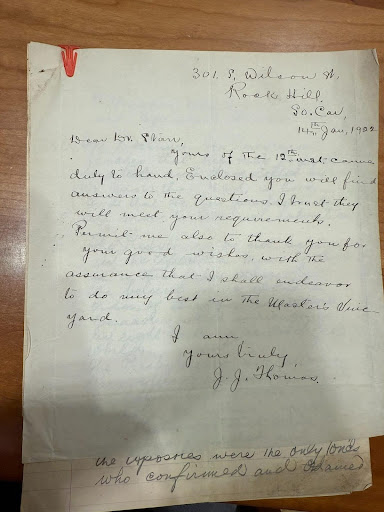 301 S. Wilson St,
Rock Hill,
So. Car,
14th Jan, 1922
Dear Dr. Starr,
Yours of the 12th inst. came
duly to hand, Enclosed you will find
answers to the questions. I trust they
will meet your requirements.
Permit me also to thank you for
your good wishes, with the
assurance that I shall endeavor
to do my best in the Master's Vine
yard.
I am
yours truly,
J. J. Thomas.
the apostles were the only
who confirmed and